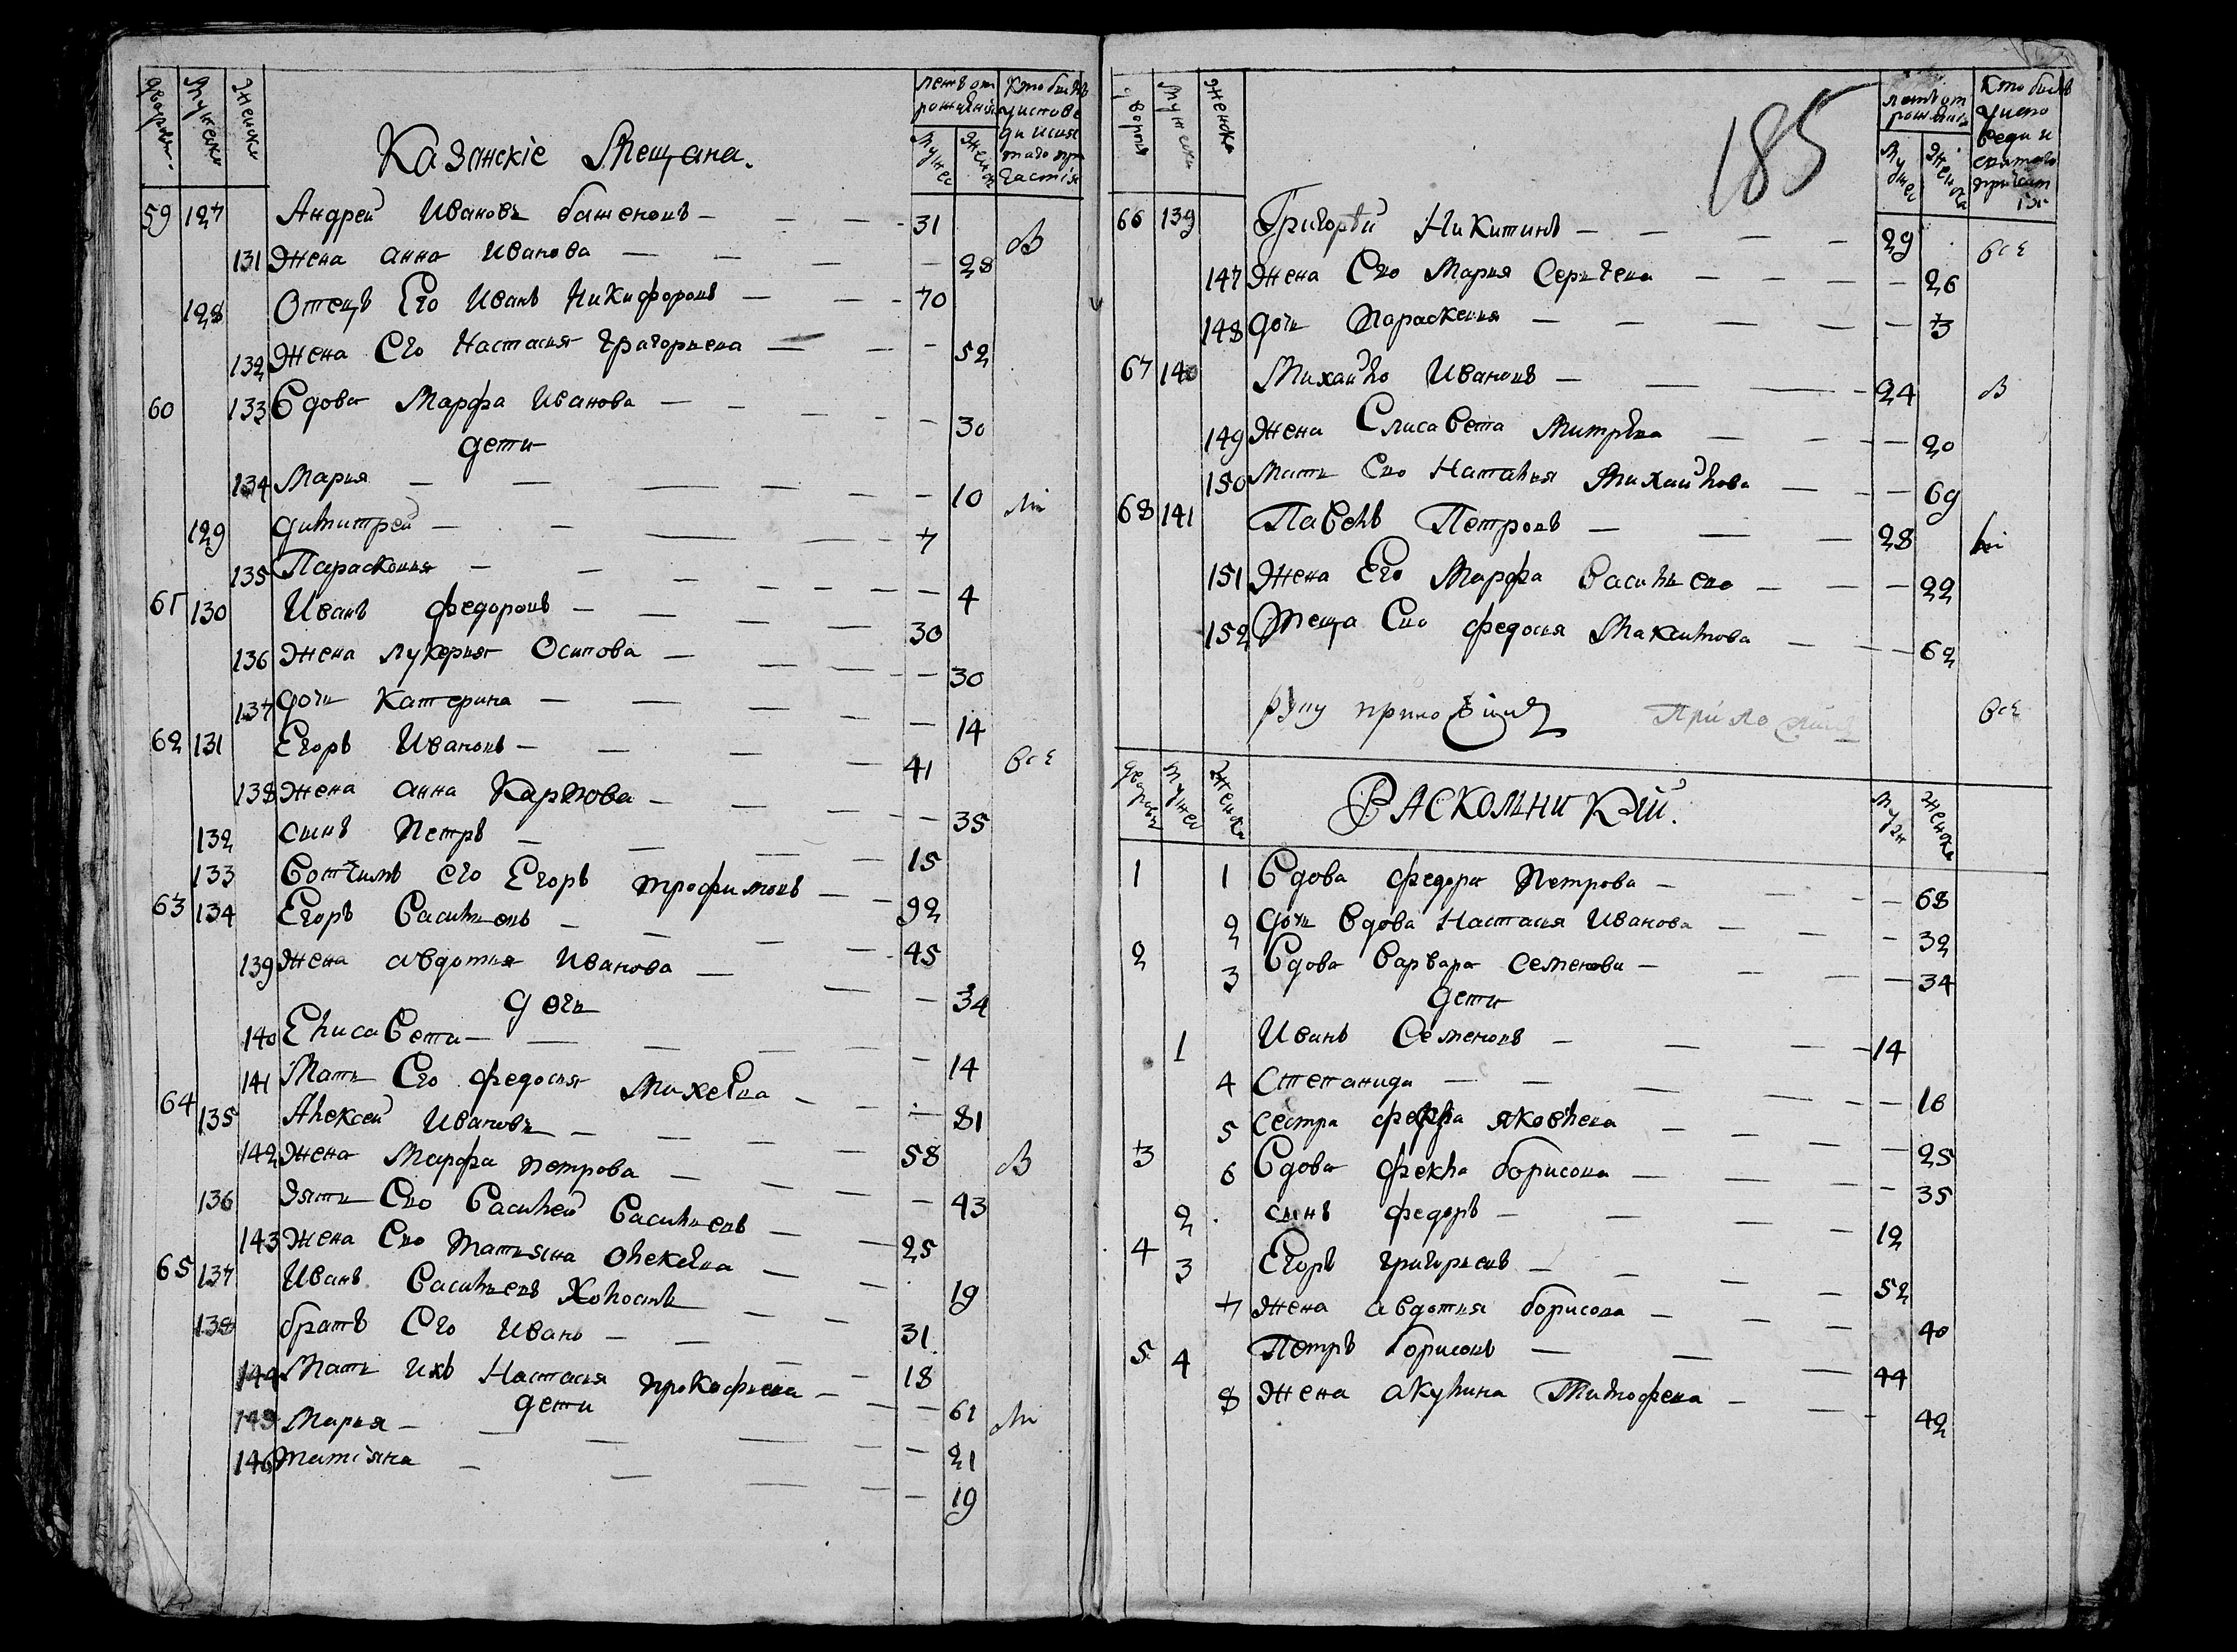 дворовъ мужеска женска
Казанскіе Мещана.
летъ от рожденія мужес женск
Кто былъ
у испове
ди и свя
таго при
частія
59 127 Андрей Ивановъ баженовъ — 31
131 Жена анна Иванова — 28
128 Отецъ Его Иванъ Никифоровъ — 70
132 Жена Его Настасья григорьева — 52
60 133 Вдова Марфа Иванова — 30
дети
134 Марья — 10
129 димитрей — 7
135 Парасковья — 4
61 130 Иванъ федоровъ — 30
136 Жена лукерья Осипова — 30
137 дочи Катерина — 14
62 131 Егоръ Ивановъ — 41 все
138 Жена анна Карпова — 35
132 сынъ Петръ — 15
133 Вотчимъ его Егоръ трофимовъ — 92
63 134 Егоръ Васильевъ — 45
139 Жена авдотья Иванова — 34
дочи
140 Елисавета — 14
141 Мать Его федосья Михеева — 81
64 135 Алексей Ивановъ — 58
142 Жена Марфа Петрова — 43
136 Зять Его Василей Васильевъ — 25
143 Жена Его Татьяна Олексеева — 19
65 137 Иванъ Васильевъ Холостъ — 31
138 братъ Его Иванъ — 18
144 Мать ихъ Настасья прокофьева — 61
дети
145 Марья — 21
146 татіяна — 19
185
дворовъ мужеска женска
летъ от рожденія мужес женска
Кто былъ
у испо
веди и
святаго
причаст
ія
66 139 Григорей Никитинъ — 29 все
147 Жена Его Марья Сергеева — 26
148 дочи Параскевия — 3
67 140 Михайло Ивановъ — 24
149 Жена Елисавета Митрева — 20
150 Мать Его Наталья Михайлова — 69
68 141 Павелъ Петровъ — 28
151 Жена Его Марфа Васильева — 22
152 Теща Его федосья Максимова — 62
руку приложилъ все
дворовъ мужес женска
РАСКОЛЬНИКИЙ.
муж женска
1 1 Вдова федора Петрова — 68
2 дочи вдова Настасья Иванова — 32
2 3 Вдова Варвара Семенова — 34
дети
1 Иванъ Семеновъ — 14
4 Степанида — 16
5 Сестра яковлева — 25
3 6 Вдова фекла борисова — 35
2 сынъ федоръ — 12
4 3 Егоръ григорьевъ — 52
7 Жена авдотья борисова — 40
5 4 Петръ борисовъ — 44
8 Жена акулина Тимофева — 42